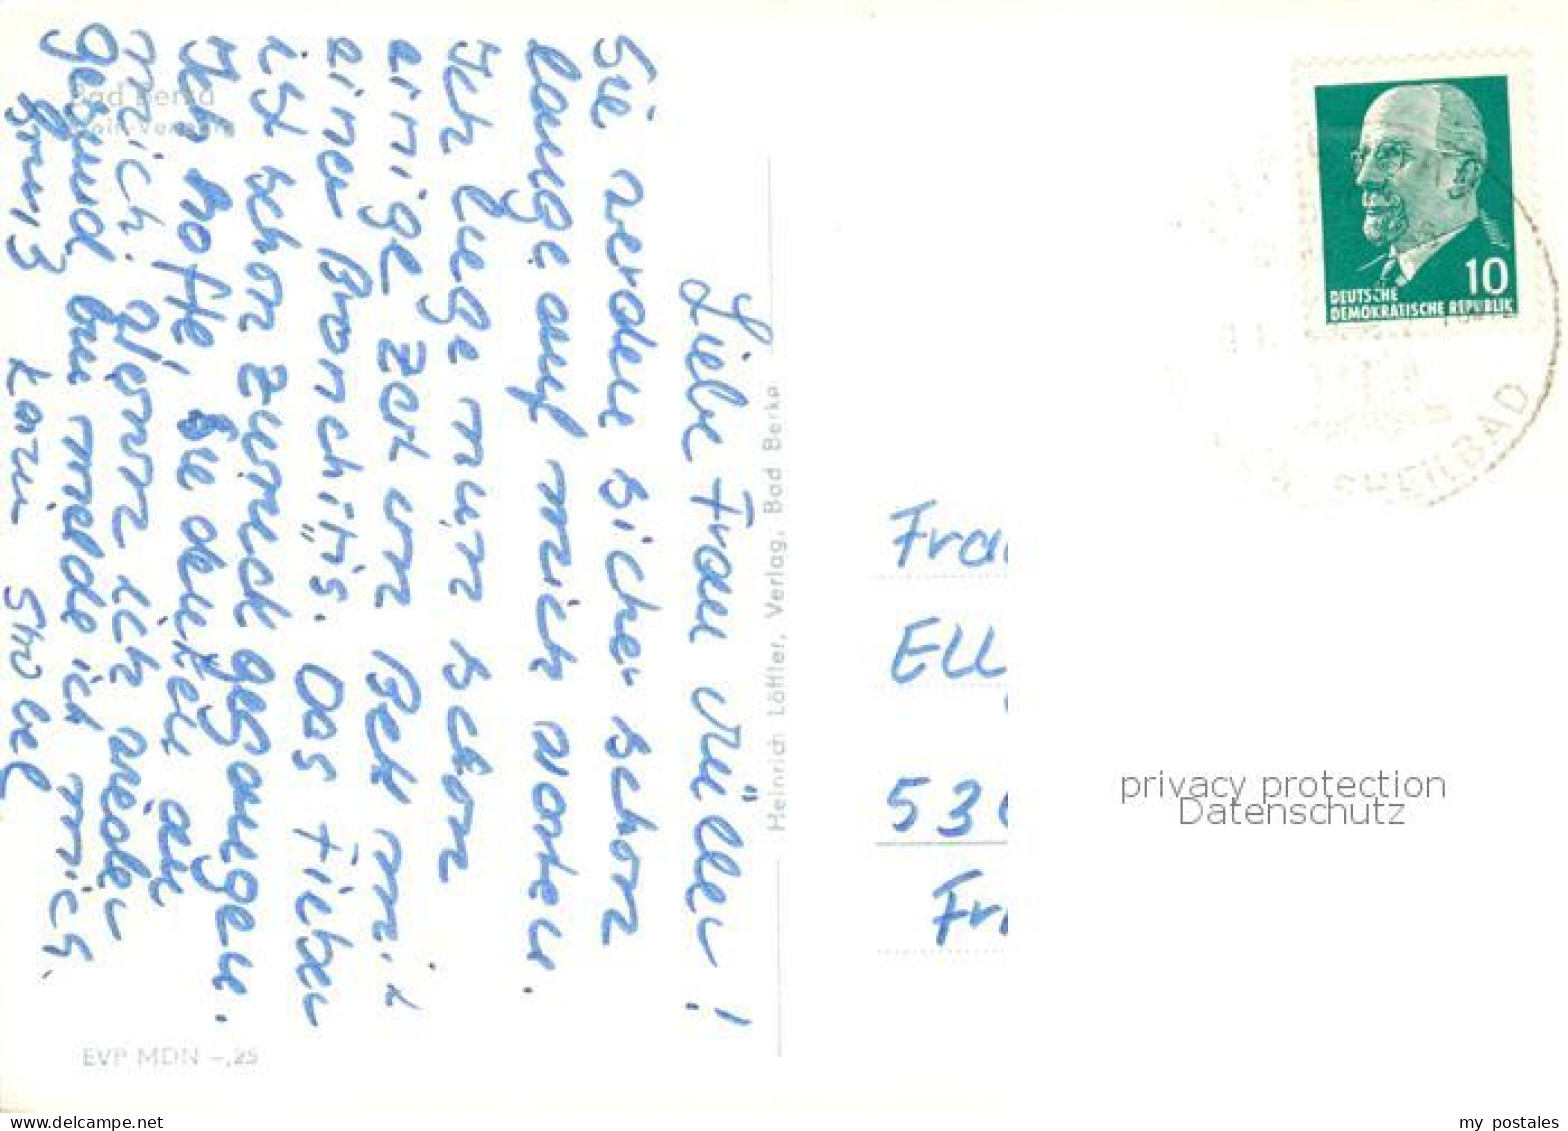 Bad Berka
Liebe Frau Müller!
Sie werden sicher schon
lange auf mich warten.
Ich liege nun schon
einige Zeit im Bett mit
einer Bronchitis. Das Fieber
ist schon zurück gegangen.
Ich hoffe, Sie denken an
mich. Wenn ich wieder
gesund bin melde ich mich.
Gruß Karin Strobel
EVP MDN -,25
Heinrich Löffler, Verlag, Bad Berka
10
DEUTSCHE
DEMOKRATISCHE REPUBLIK
HEILBAD
Frau
ELL
530
Fr
privacy protection
Datenschutz
my postales